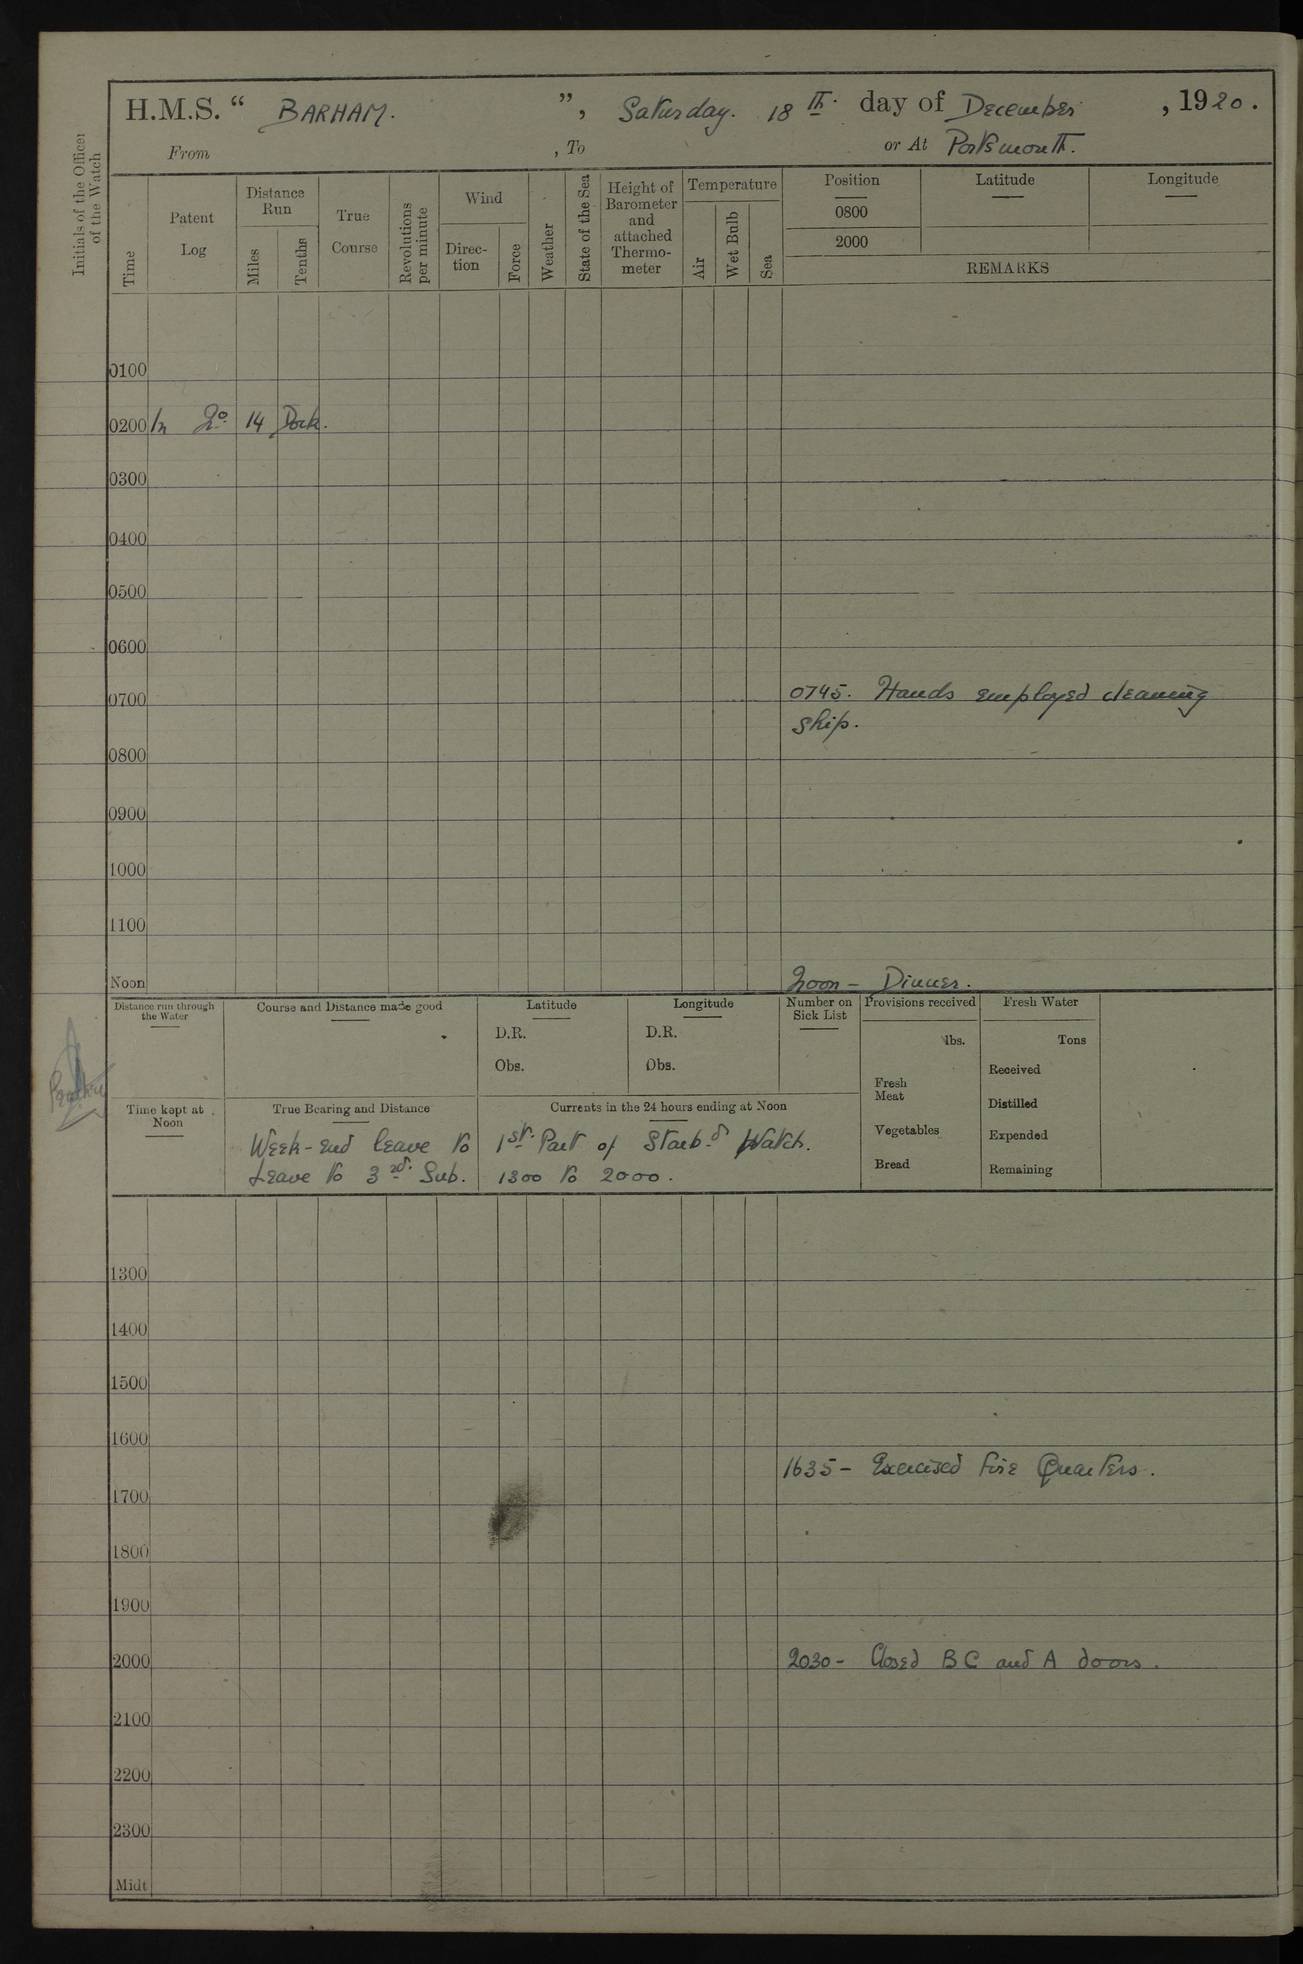 H.M.S. “ BARHAM. ”, Saturday. 18th. day of December , 1920.
From , To or At Portsmouth.
Initials of the Officer of the Watch
Time
Patent Log
Distance Run
Miles
Tenths
True Course
Revolutions per minute
Wind
Direc-tion
Force
Weather
State of the Sea
Height of Barometer and attached Thermo-meter
Temperature
Air
Wet Bulb
Sea
Position
0800
2000
Latitude
Longitude
REMARKS
0100
0200 In No. 14 Dock.
0300
0400
0500
0600
0700 0745. Hands employed cleaning
ship.
0800
0900
1000
1100
Noon Noon – Dinner.
Distance run through the Water
Course and Distance made good
Latitude
D.R.
Obs.
Longitude
D.R.
Obs.
Number on Sick List
Provisions received
lbs.
Fresh Meat
Vegetables
Bread
Fresh Water
Tons
Received
Distilled
Expended
Remaining
Time kept at Noon
True Bearing and Distance
Currents in the 24 hours ending at Noon
Week-end leave to 1st. Part of Starbd. Watch.
Leave to 3rd. Sub. 1300 to 2000.
1300
1400
1500
1600
1635 – Exercised Fire Quarters.
1700
1800
1900
2000 2030 – Closed B C and A doors.
2100
2200
2300
Midt